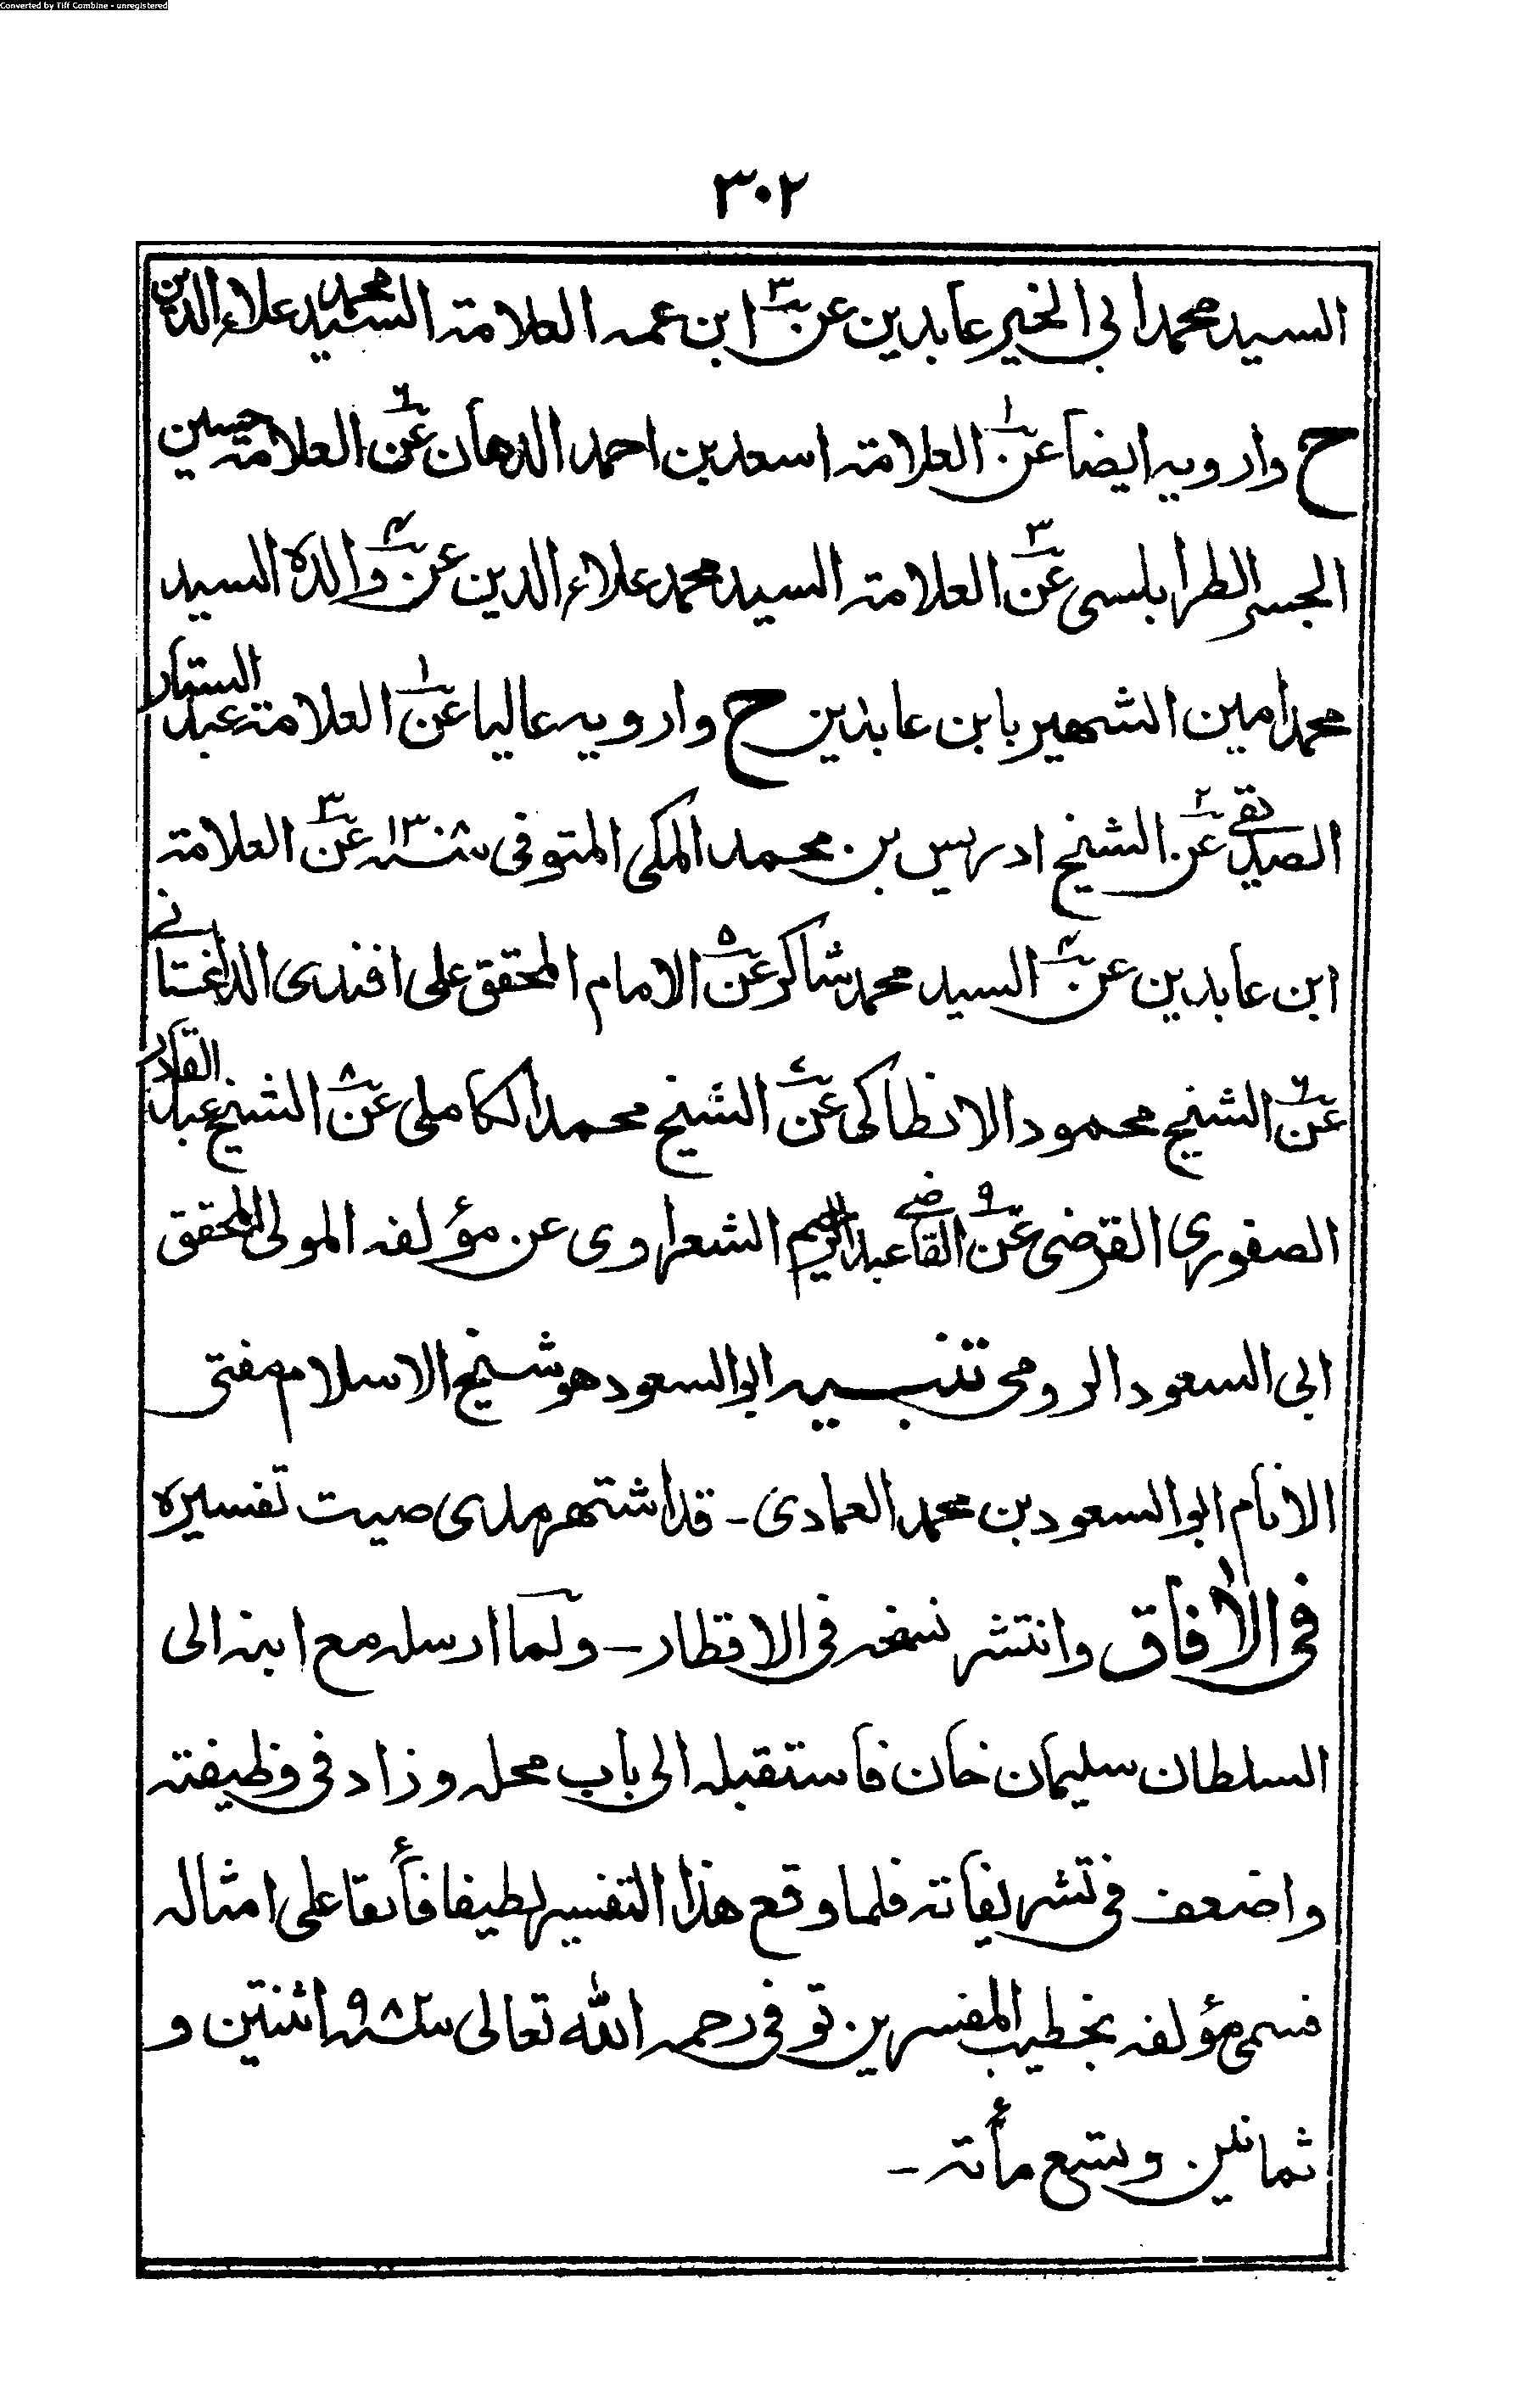 Converted by Tiff Combine - unregistered
٣٠٢
السيد محمد ابي الخير عابدين عن٣ ابن عمه العلامة السيد محمد علاء الدين
ح وارويه ايضا عن١ العلامة اسعد بن احمد الدهان عن٢ العلامة حسين
الجسر الطرابلسى عن٣ العلامة السيد محمد علاء الدين عن٤ والده السيد
محمد امين الشهير بابن عابدين ح وارويه عاليا عن١ العلامة عبد الستار
الصديقى عن٢ الشيخ ادريس بن محمد المكى المتوفى سنة ١٣٠٨ عن٣ العلامة
ابن عابدين عن٤ السيد محمد شاكر عن٥ الامام المحقق على افندى الداغستانى
عن٦ الشيخ محمود الانطاكى عن٧ الشيخ محمد الكاملى عن٨ الشيخ عبد القادر
الصفورى القرضى عن٩ القاضى عبد الرحيم الشعراوى عن مؤلفه المولى المحقق
ابى السعود الرومى تنبيه ابو السعود هو شيخ الاسلام مفتى
الانام ابو السعود بن محمد العمادى - قد اشتهر صيت تفسيره
فى الأفاق وانتشر نسخه فى الاقطار - ولما ارسله مع ابنه الى
السلطان سليمان خان فاستقبله الى باب محله وزاد فى وظيفته
واضعف فى تشريفاته فلما وقع هذا التفسير لطيفا فأئقا على امثاله
فسمى مؤلفه بخطيب المفسرين توفى رحمه الله تعالى سنة ٩٨٢ اثنتين و
ثمانين وتسع مأئة -